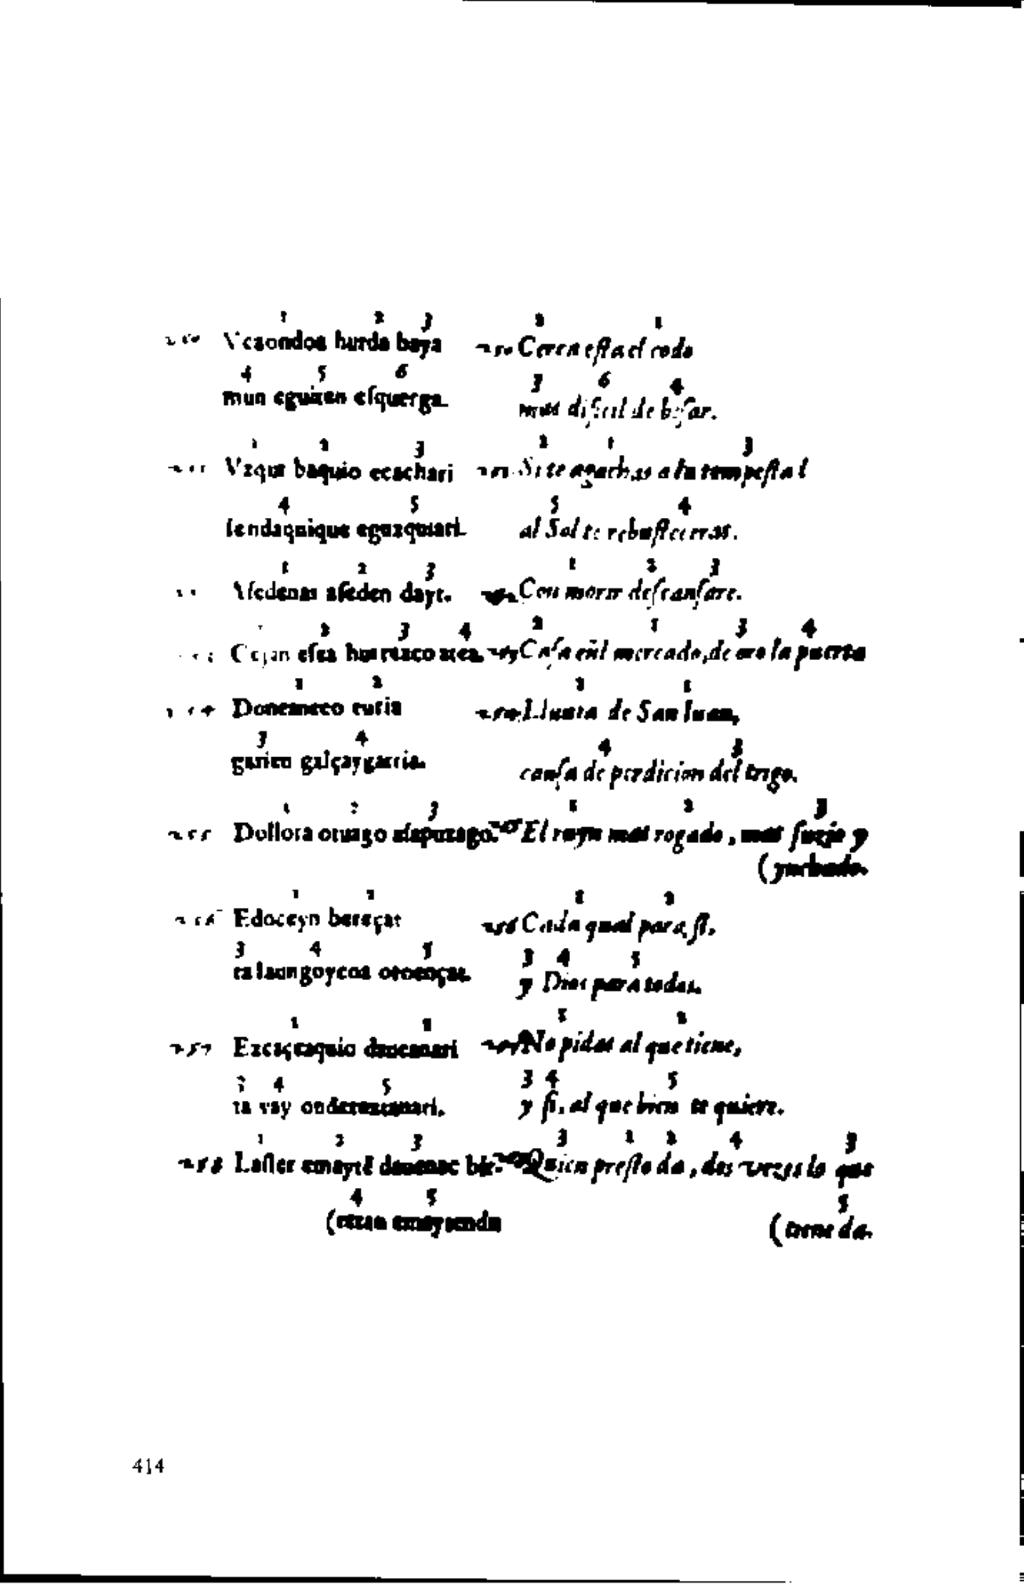 1 2 3 2 1
Vcaondoa hurda baya Cerca esta el codo
4 5 6 3 6 4
mun eguiten esquerga. mas dificil de besar.
1 2 3 2 1 3
Vzqur baquio ecachari Si te agachas a la tempestad
4 5 5 4
sendaquique eguzquiari. al Sol te rebustecerras.
1 2 3 1 2 3
asedenas aseden dayt. Con morir descansare.
2 3 4 2 1 3 4
esea hurreaco atea. Casa eñl mercado, de oro la puerta
1 2 2 1
254 Doneaneco euria 254 Lluuia de San Iuan,
3 4 4 3
garien galçaygarria. causa de perdicion del trigo.
1 2 3 1 2 3
255 Dollora otuago asapuzago. El ruyn mas rogado, mas suzio y
(
1 2 1 2
256 Edoceyn beraçat 256 Cada qual para si,
3 4 5 3 4 5
ta Iaungoycoa oroençat. y Dios para todos.
1 2 1 2
257 Ezcaçtaquio daucanari No pidas al que tiene,
3 4 5 3 4 5
ta vay onderextanari. y si, al que bien te quiere.
1 2 3 3 1 2 4 3
258 Laster emaytē dauenac bir Quien presto da, dos vezes lo que
4 5 5
(etzan emaytendu (tiene da.
414